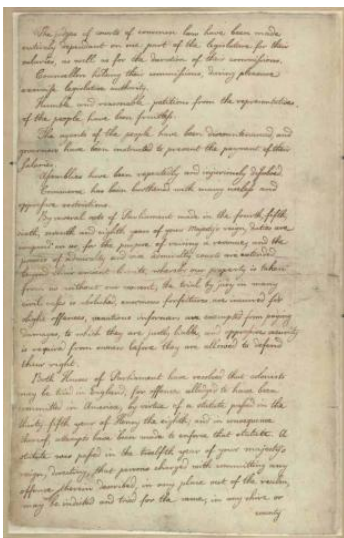 The judges of courts of common law have been made
entirely dependant on one part of the legislature for their
salaries, as well as for the duration of their commissions.
Councellors holding their commissions, during pleasure
exercise legislative authority.
Humble and reasonable petitions from the representatives
of the people have been fruitless.
The agents of the people have been discountenanced, and
governors have been instructed to prevent the payment of their
salaries.
Assemblies have been repeatedly and injuriously dissolved.
Commerce has been burthened with many useless and
oppressive restrictions.
By several acts of Parliament made in the fourth, fifth,
sixth, seventh and eighth years of your Majesty's reign, duties are
imposed on us, for the purpose of raising a revenue, and the
powers of admiralty and vice admiralty courts are extended
beyond their ancient limits, whereby our property is taken
from us without our consent, the trial by jury in many
civil cases is abolished, enormous forfeitures are incurred for
slight offences, vexatious informers are exempted from paying
damages, to which they are justly liable, and oppressive security
is required from owners before they are allowed to defend
their right.
Both Houses of Parliament have resolved that colonists
may be tried in England, for offences alledged to have been
committed in America, by virtue of a statute passed in the
thirty fifth year of Henry the eighth; and in consequence
thereof, attempts have been made to enforce that statute. A
statute was passed in the twelfth year of your majesty's
reign, directing, that persons charged with committing any
offence therein described, in any place out of the realm,
may be indicted and tried for the same, in any shire or
county